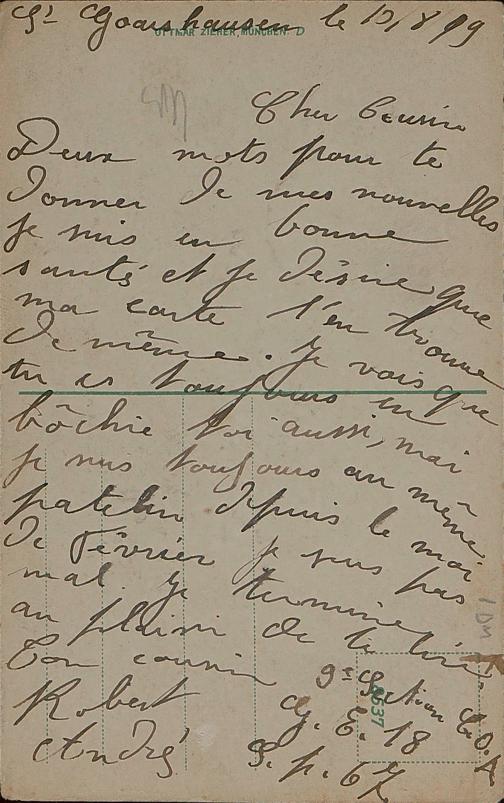 St Goarshausen le 12/8/19
OTTMAR ZIEHER, MÜNCHEN. D
Cher Cousin
Deux mots pour te
donner de mes nouvelles
je suis en bonne
santé et je désire que
ma carte t'en trouve
de même. Je vois que
tu es toujours en
bôchie toi aussi, moi
je suis toujours au même
patelin depuis le moi
de Février je suis pas
mal je termine
au plaisir de te lire
Ton cousin
Robert
André
9e Section C.O.A
G. E. 18
S. p. 67